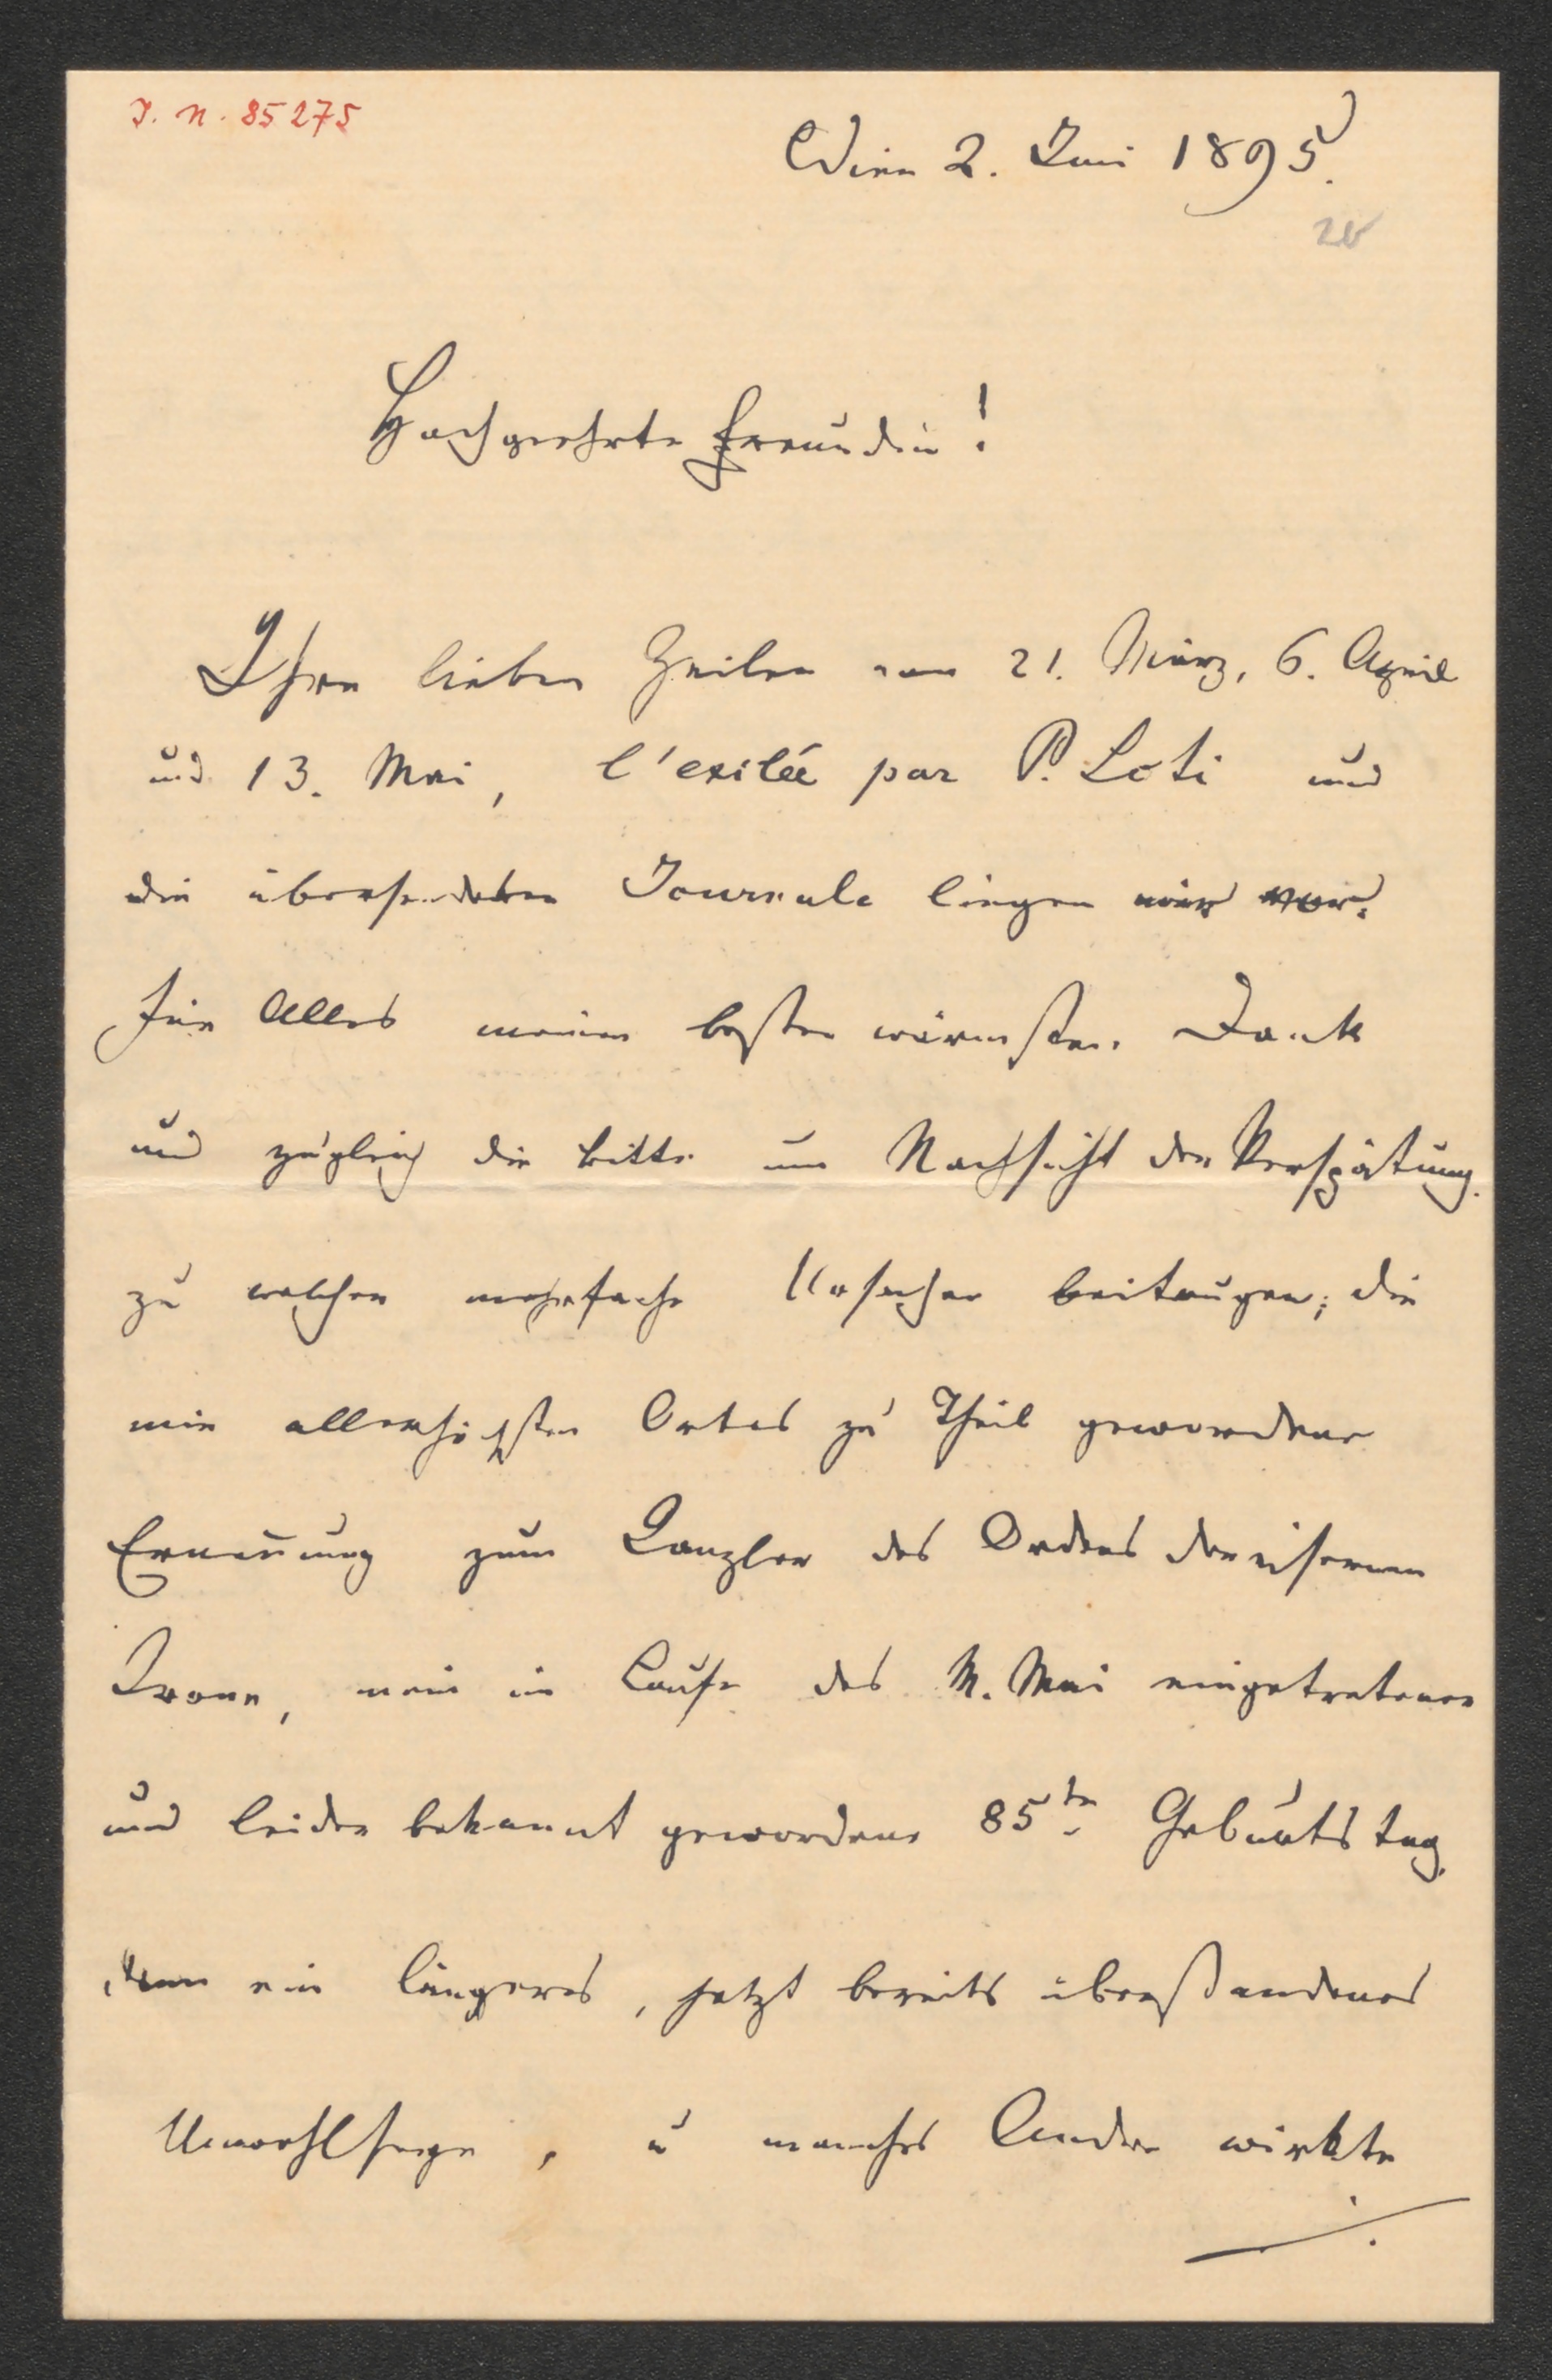 J. N. 85275
Wien 2. Juni 1895.
Hochgeehrte Freundin!
Ihre lieben Zeilen vom 21. März, 6. April
und 13. Mai, l'exilée par P. Loti und
die übersendeten Journale liegen mir vor.
Für Alles meinen besten wärmsten Dank
und zugleich die Bitte um Nachsicht der Verspätung.
zu welcher mehrfache Ursachen beitrugen; die
mir allerhöchsten Ortes zu Theil gewordene
Ernennung zum Kanzler des Ordens der eisernen
Krone, mein im Laufe des M. Mai eingetretener
und leider bekannt gewordene 85te Geburtstag,
dann ein längeres, jetzt bereits überstandenes
Unwohlseyn, u manches Andere wirkte